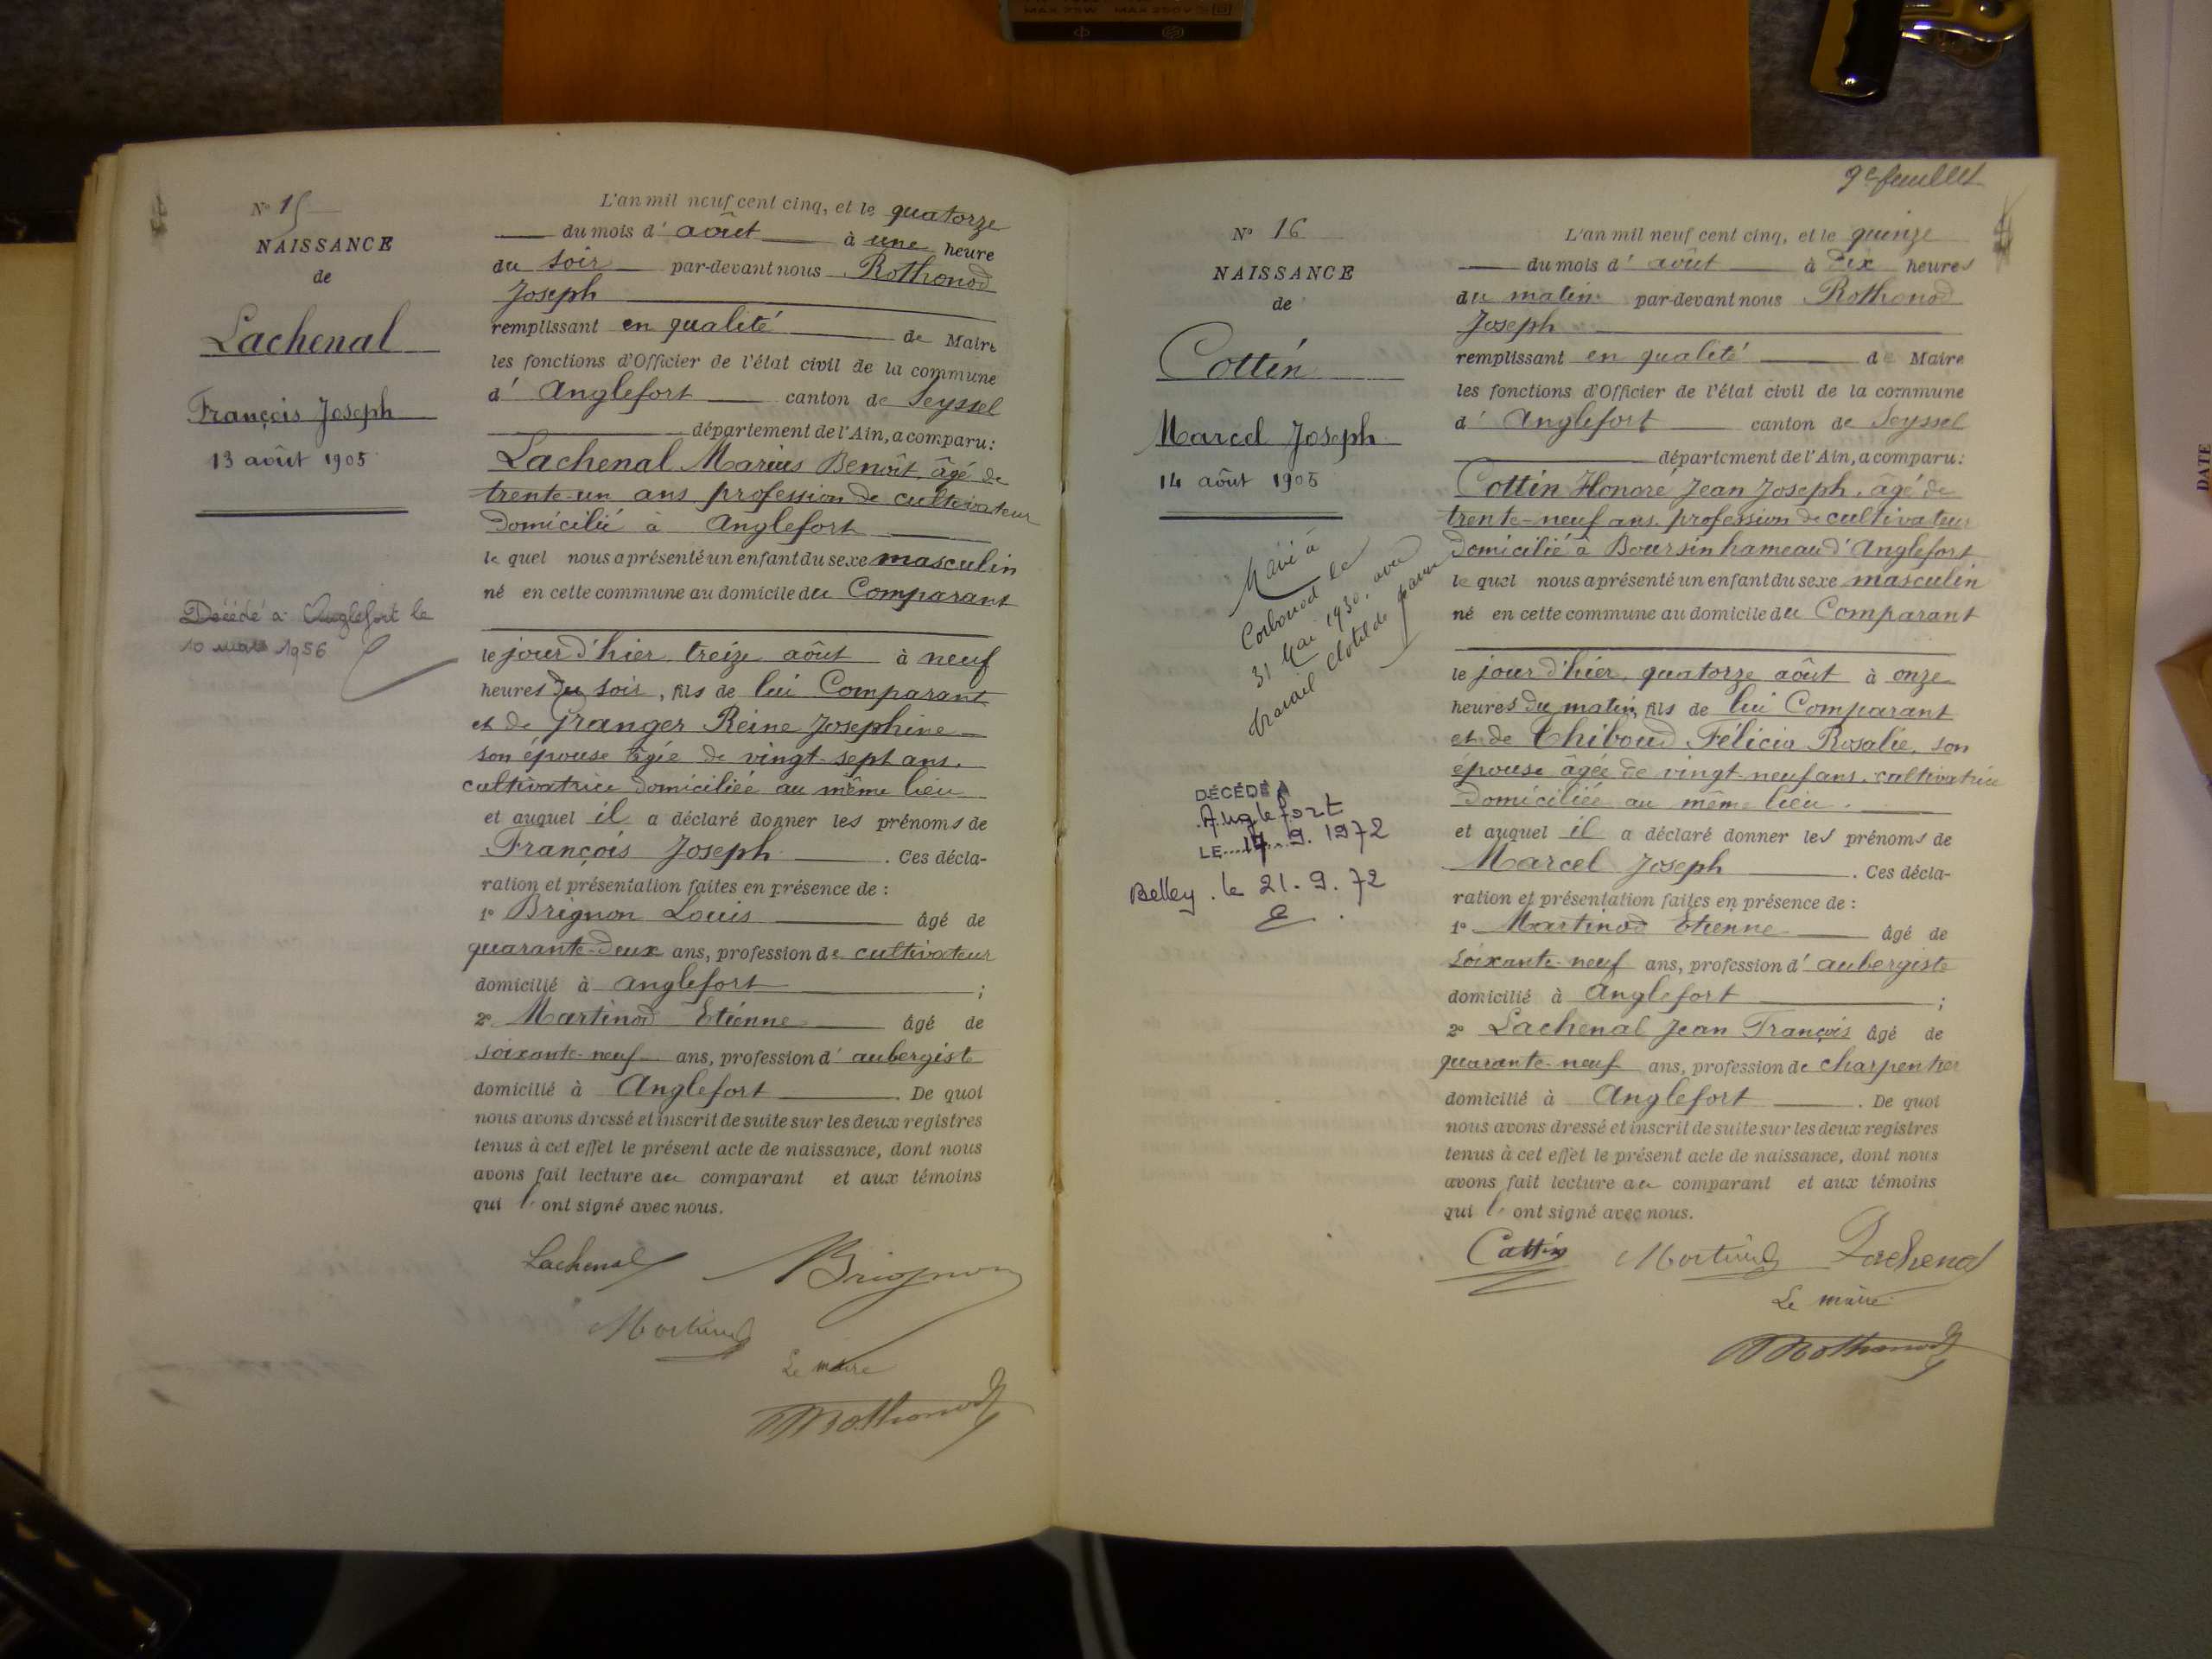 MAX 75W MAX 250V
N° 15
NAISSANCE
de
Lachenal
François Joseph
13 août 1905
Décédé à Anglefort le
10 mars 1956
L'an mil neuf cent cinq, et le quatorze
du mois d' août à une heure
du soir par-devant nous Rothonod
Joseph
remplissant en qualité de Maire
les fonctions d'Officier de l'état civil de la commune
d' Anglefort canton de Seyssel
département de l'Ain, a comparu:
Lachenal Marius Benoît, âgé de
trente-un ans profession de cultivateur
domicilié à Anglefort
le quel nous a présenté un enfant du sexe masculin
né en cette commune au domicile du Comparant
le jour d'hier treize août à neuf
heures du soir, fils de lui Comparant
et de Granger Reine Josephine
son épouse âgée de vingt-sept ans.
cultivatrice domiciliée au même lieu
et auquel il a déclaré donner les prénoms de
François Joseph . Ces décla-
ration et présentation faites en présence de :
1° Brignon Louis âgé de
quarante-deux ans, profession de cultivateur
domicilié à Anglefort ;
2° Martinod Etienne âgé de
soixante-neuf ans, profession d' aubergiste
domicilié à Anglefort . De quoi
nous avons dressé et inscrit de suite sur les deux registres
tenus à cet effet le présent acte de naissance, dont nous
avons fait lecture au comparant et aux témoins
qui l' ont signé avec nous.
Lachenal Brignon
Martinod
Le maire
Rothonod
9e feuillet
N° 16
NAISSANCE
de
Cottin
Marcel Joseph
14 août 1905
Marié à
Corbonod le
31 Mai 1930, avec
Clotilde
DÉCÉDÉ A
Anglefort
LE 17.9.1972
Belley . le 21.9.72
L'an mil neuf cent cinq, et le quinze
du mois d' août à dix heures
du matin par-devant nous Rothonod
Joseph
remplissant en qualité de Maire
les fonctions d'Officier de l'état civil de la commune
d' Anglefort canton de Seyssel
département de l'Ain, a comparu:
Cottin Honoré Jean Joseph, âgé de
trente-neuf ans, profession de cultivateur
domicilié à Boursin hameau d'Anglefort
le quel nous a présenté un enfant du sexe masculin
né en cette commune au domicile du Comparant
le jour d'hier, quatorze août à onze
heures du matin, fils de lui Comparant
et de Thiboud Félicia Rosalie, son
épouse âgée de vingt-neuf ans, cultivatrice
domiciliée au même lieu.
et auquel il a déclaré donner les prénoms de
Marcel Joseph . Ces décla-
ration et présentation faites en présence de :
1° Martinod Etienne âgé de
soixante-neuf ans, profession d' aubergiste
domicilié à Anglefort ;
2° Lachenal Jean François âgé de
quarante-neuf ans, profession de charpentier
domicilié à Anglefort . De quoi
nous avons dressé et inscrit de suite sur les deux registres
tenus à cet effet le présent acte de naissance, dont nous
avons fait lecture au comparant et aux témoins
qui l' ont signé avec nous.
Cottin Martinod Lachenal
Le maire
Rothonod
DATE